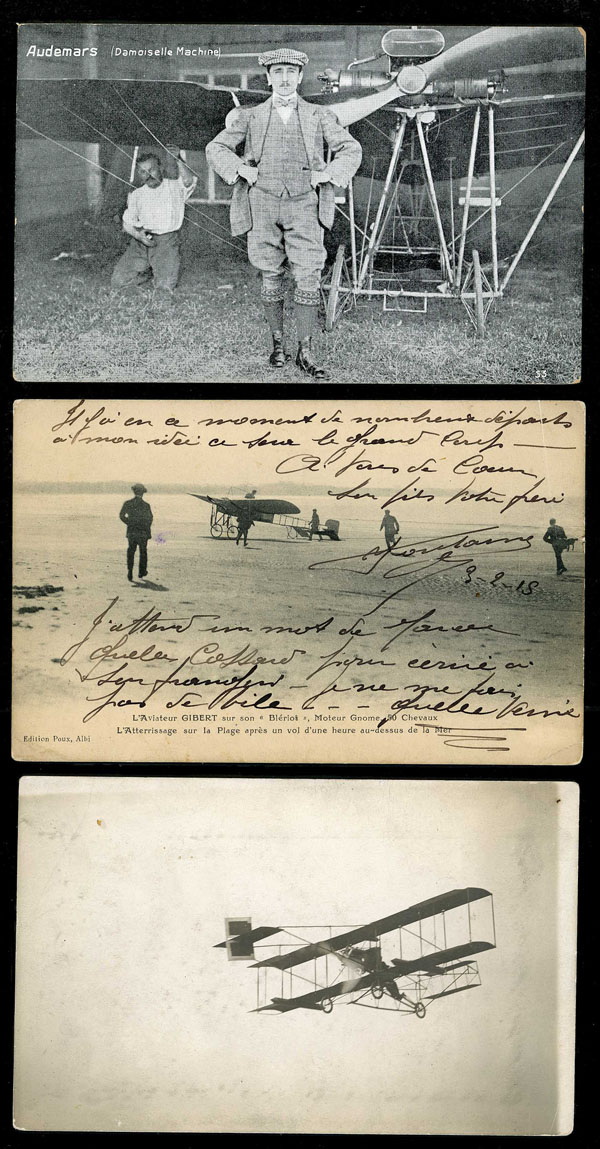 Audemars (Damoiselle Machine)
53
Il y a en ce moment de nombreux départs
à mon idée ce sera le grand coup
A vous de Coeur
son fils votre frère
Fontaine
9-2-15
J'attend un mot de
quelle Cossard pour
son
pas de bile - - - quelle
L'Aviateur GIBERT sur son « Blériot », Moteur Gnome, 50 Chevaux
L'Atterrissage sur la Plage après un vol d'une heure au-dessus de la Mer
Edition Poux, Albi